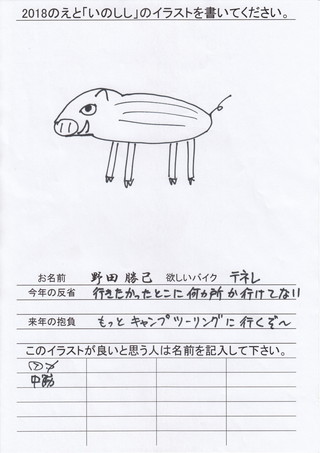 2018のえと「いのしし」のイラストを書いてください。
お名前 野田 勝己 欲しいバイク テネレ
今年の反省 行きたかったとこに何カ所か行けてない!
来年の抱負 もっとキャンプツーリングに行くぞ~
このイラストが良いと思う人は名前を記入して下さい。